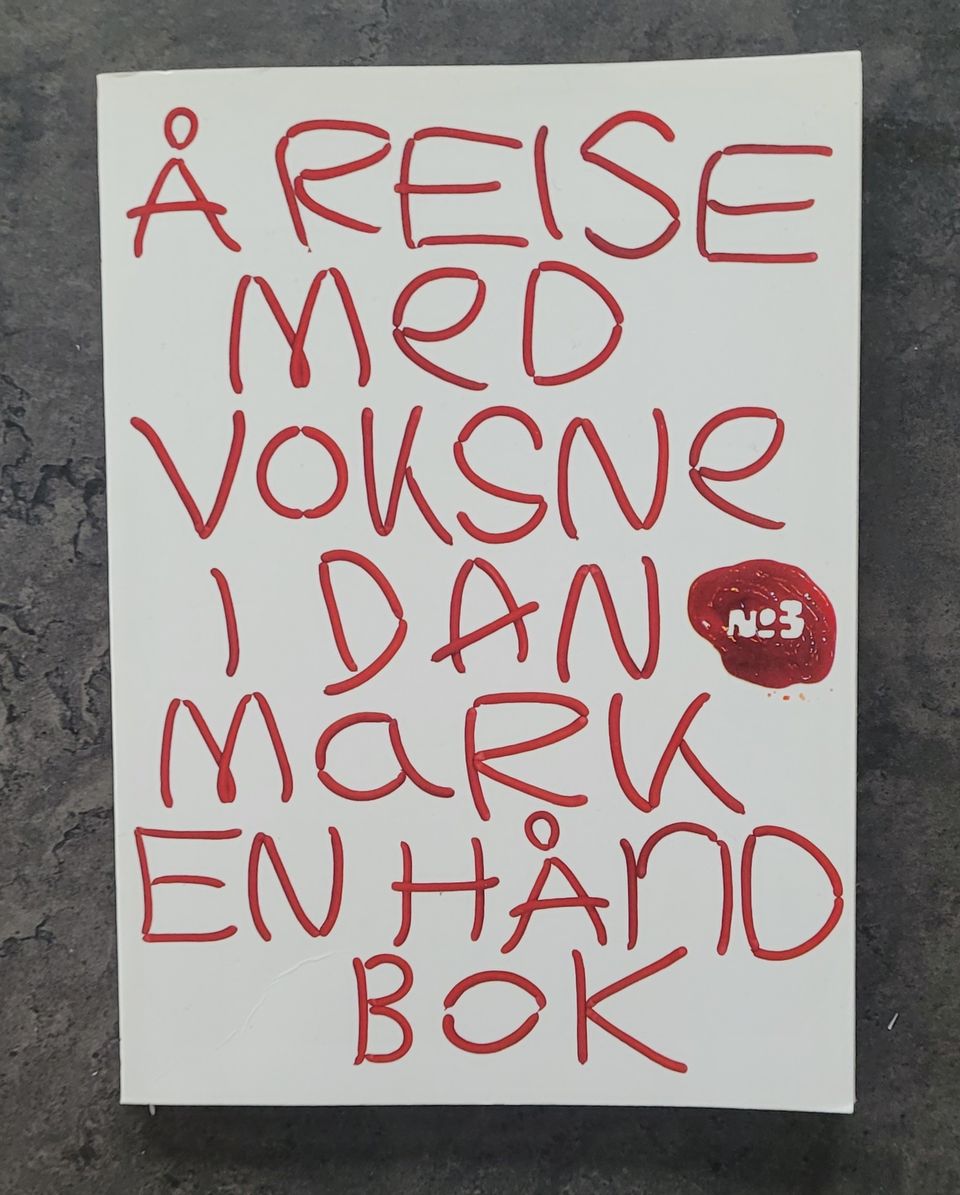 Å REISE
MeD
VOKSNe
I DAN
No3
MaRK
EN HÅnD
BOK